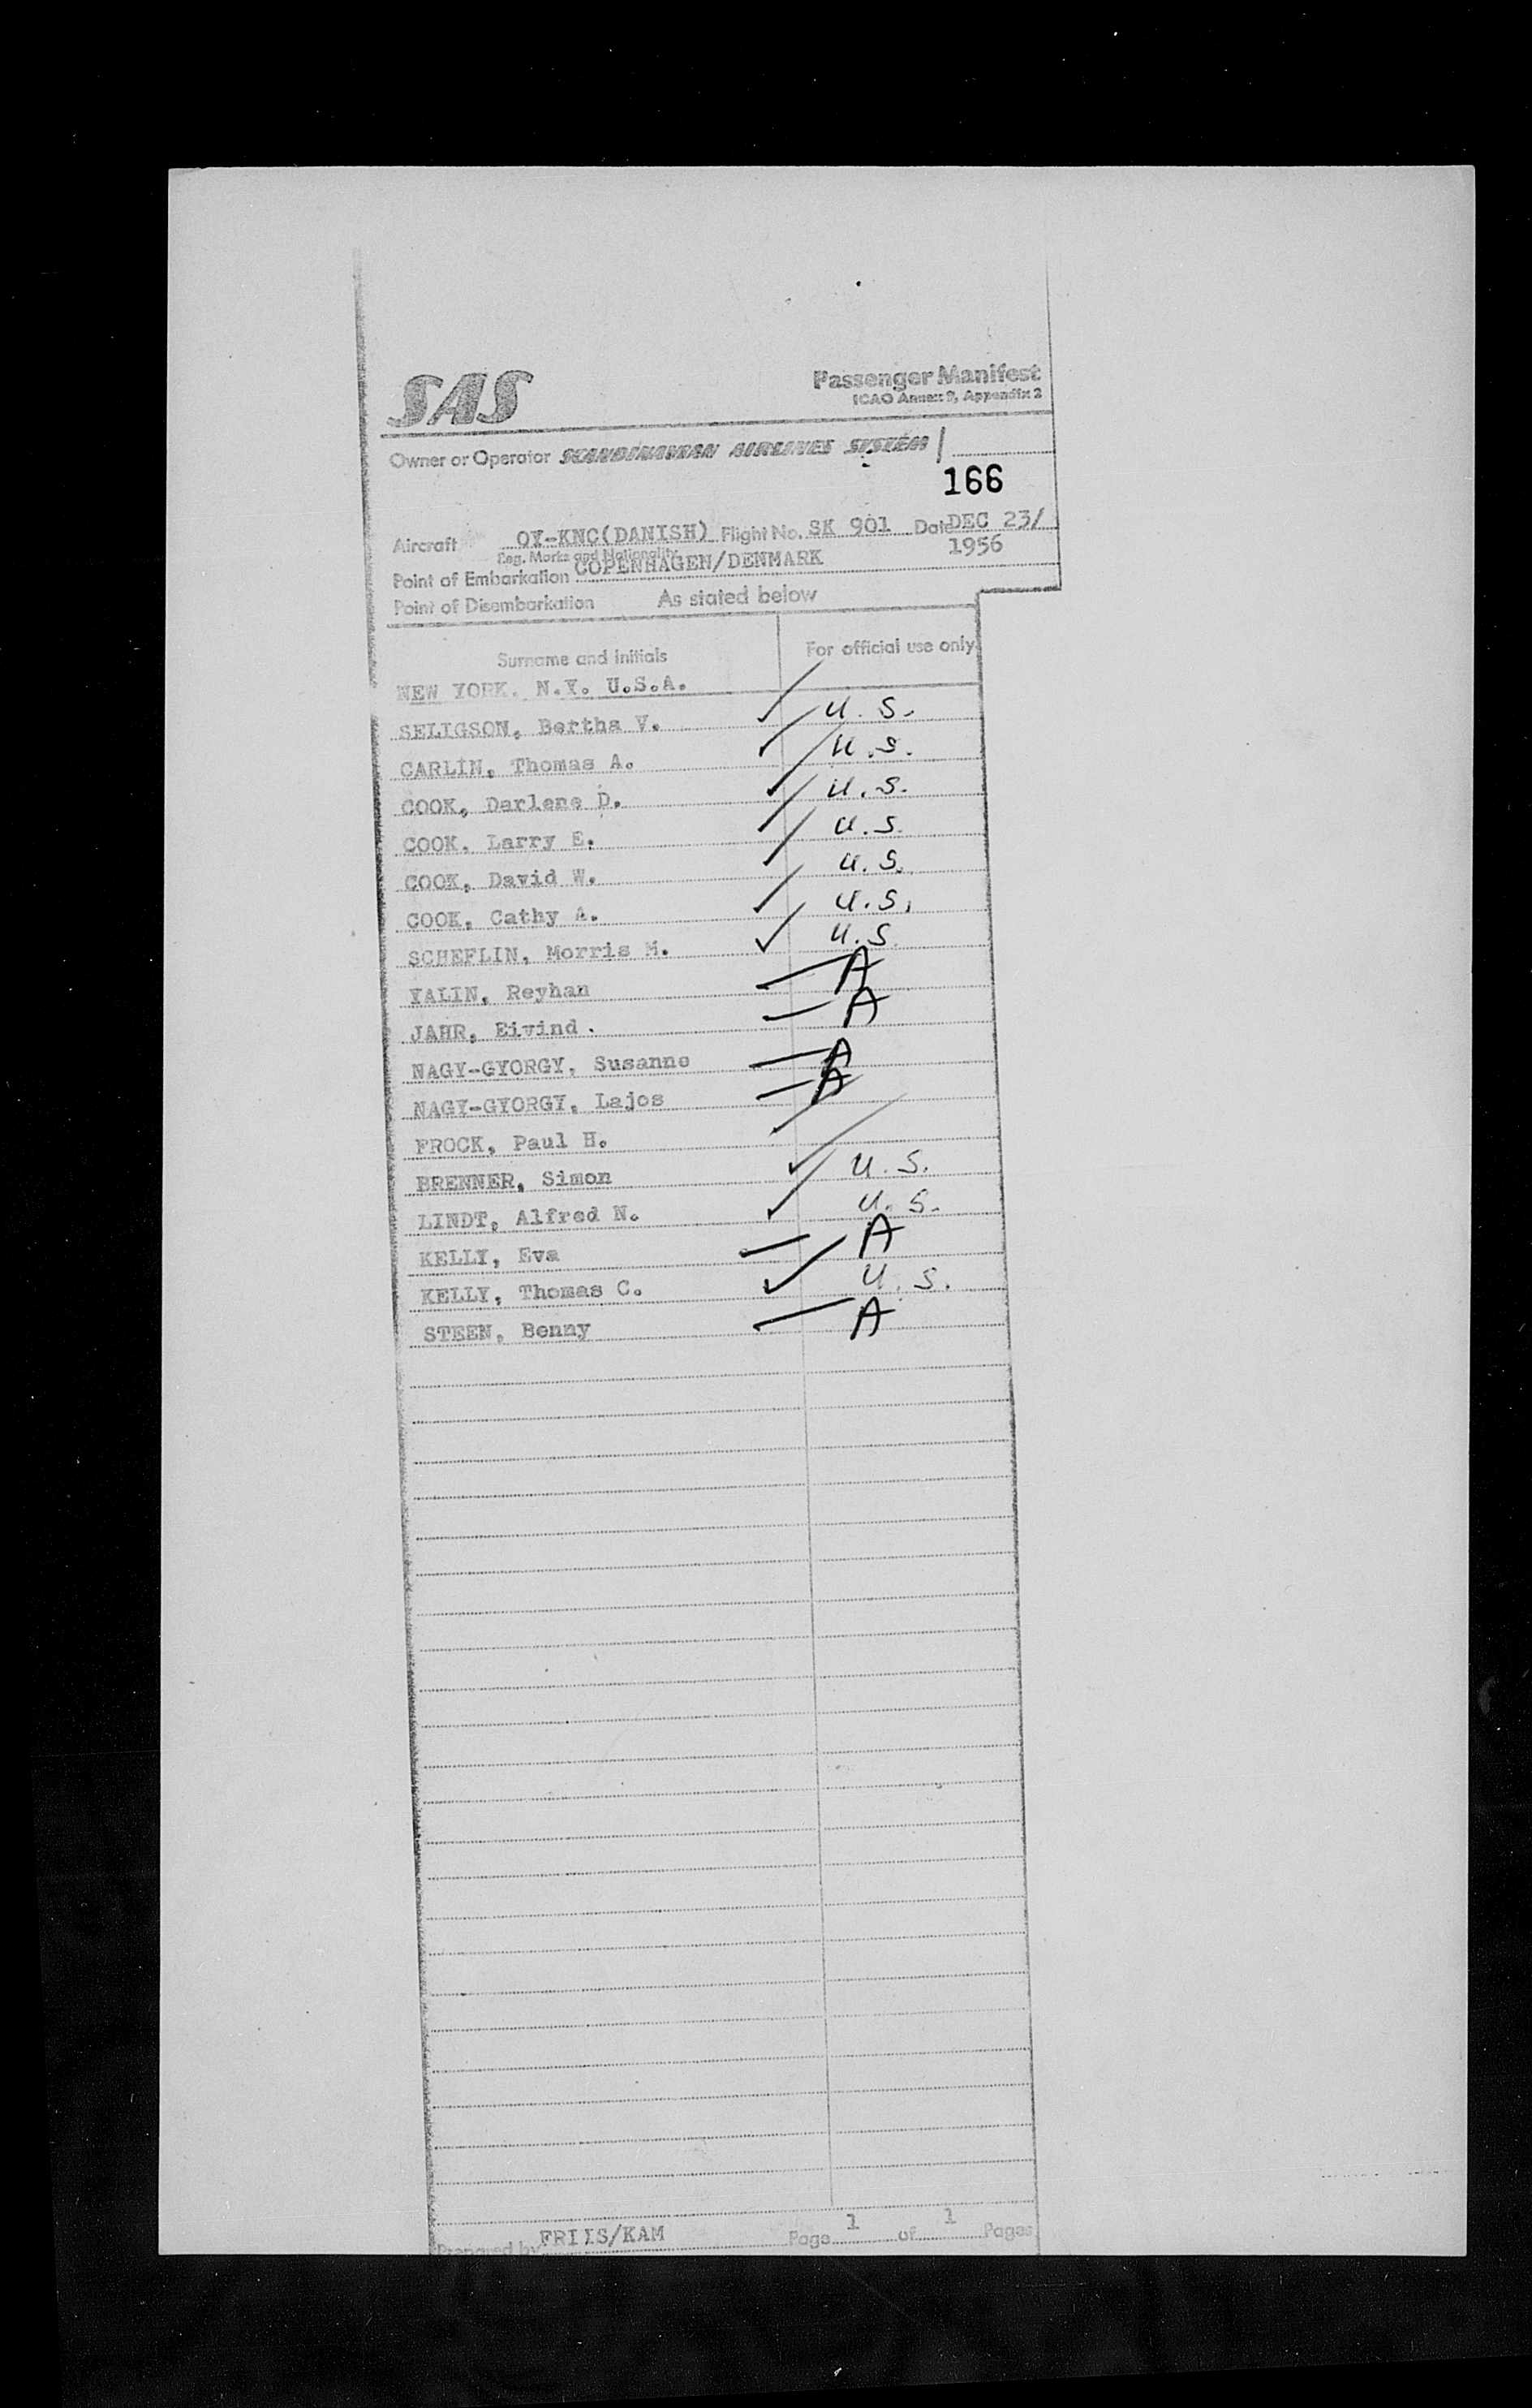 SAS
Passenger Manifest
ICAO Annex 9, Appendix 2
Owner or Operator SCANDINAVIAN AIRLINES SYSTEM
166
Aircraft OY-KNC(DANISH) Flight No. SK 901 Date DEC 23/
1956
Reg. Marks and Nationality
Point of Embarkation COPENHAGEN/DENMARK
Point of Disembarkation As stated below
Surname and initials For official use only
NEW YORK, N.Y. U.S.A.
SELIGSON, Bertha V. ✓ U.S.
CARLIN, Thomas A. ✓ U.S.
COOK, Darlene D. ✓ U.S.
COOK, Larry E. ✓ U.S.
COOK, David W. ✓ U.S.
COOK, Cathy A. ✓ U.S.
SCHEFLIN, Morris M. ✓ U.S.
YALIN, Reyhan — A
JAHR, Eivind. — A
NAGY-GYORGY, Susanne — A
NAGY-GYORGY, Lajos — A
FROCK, Paul H. ✓
BRENNER, Simon ✓ U.S.
LINDT, Alfred N. ✓ U.S.
KELLY, Eva — A
KELLY, Thomas C. ✓ U.S.
STEEN, Benny — A
Prepared by FRIIS/KAM Page 1 of 1 Pages